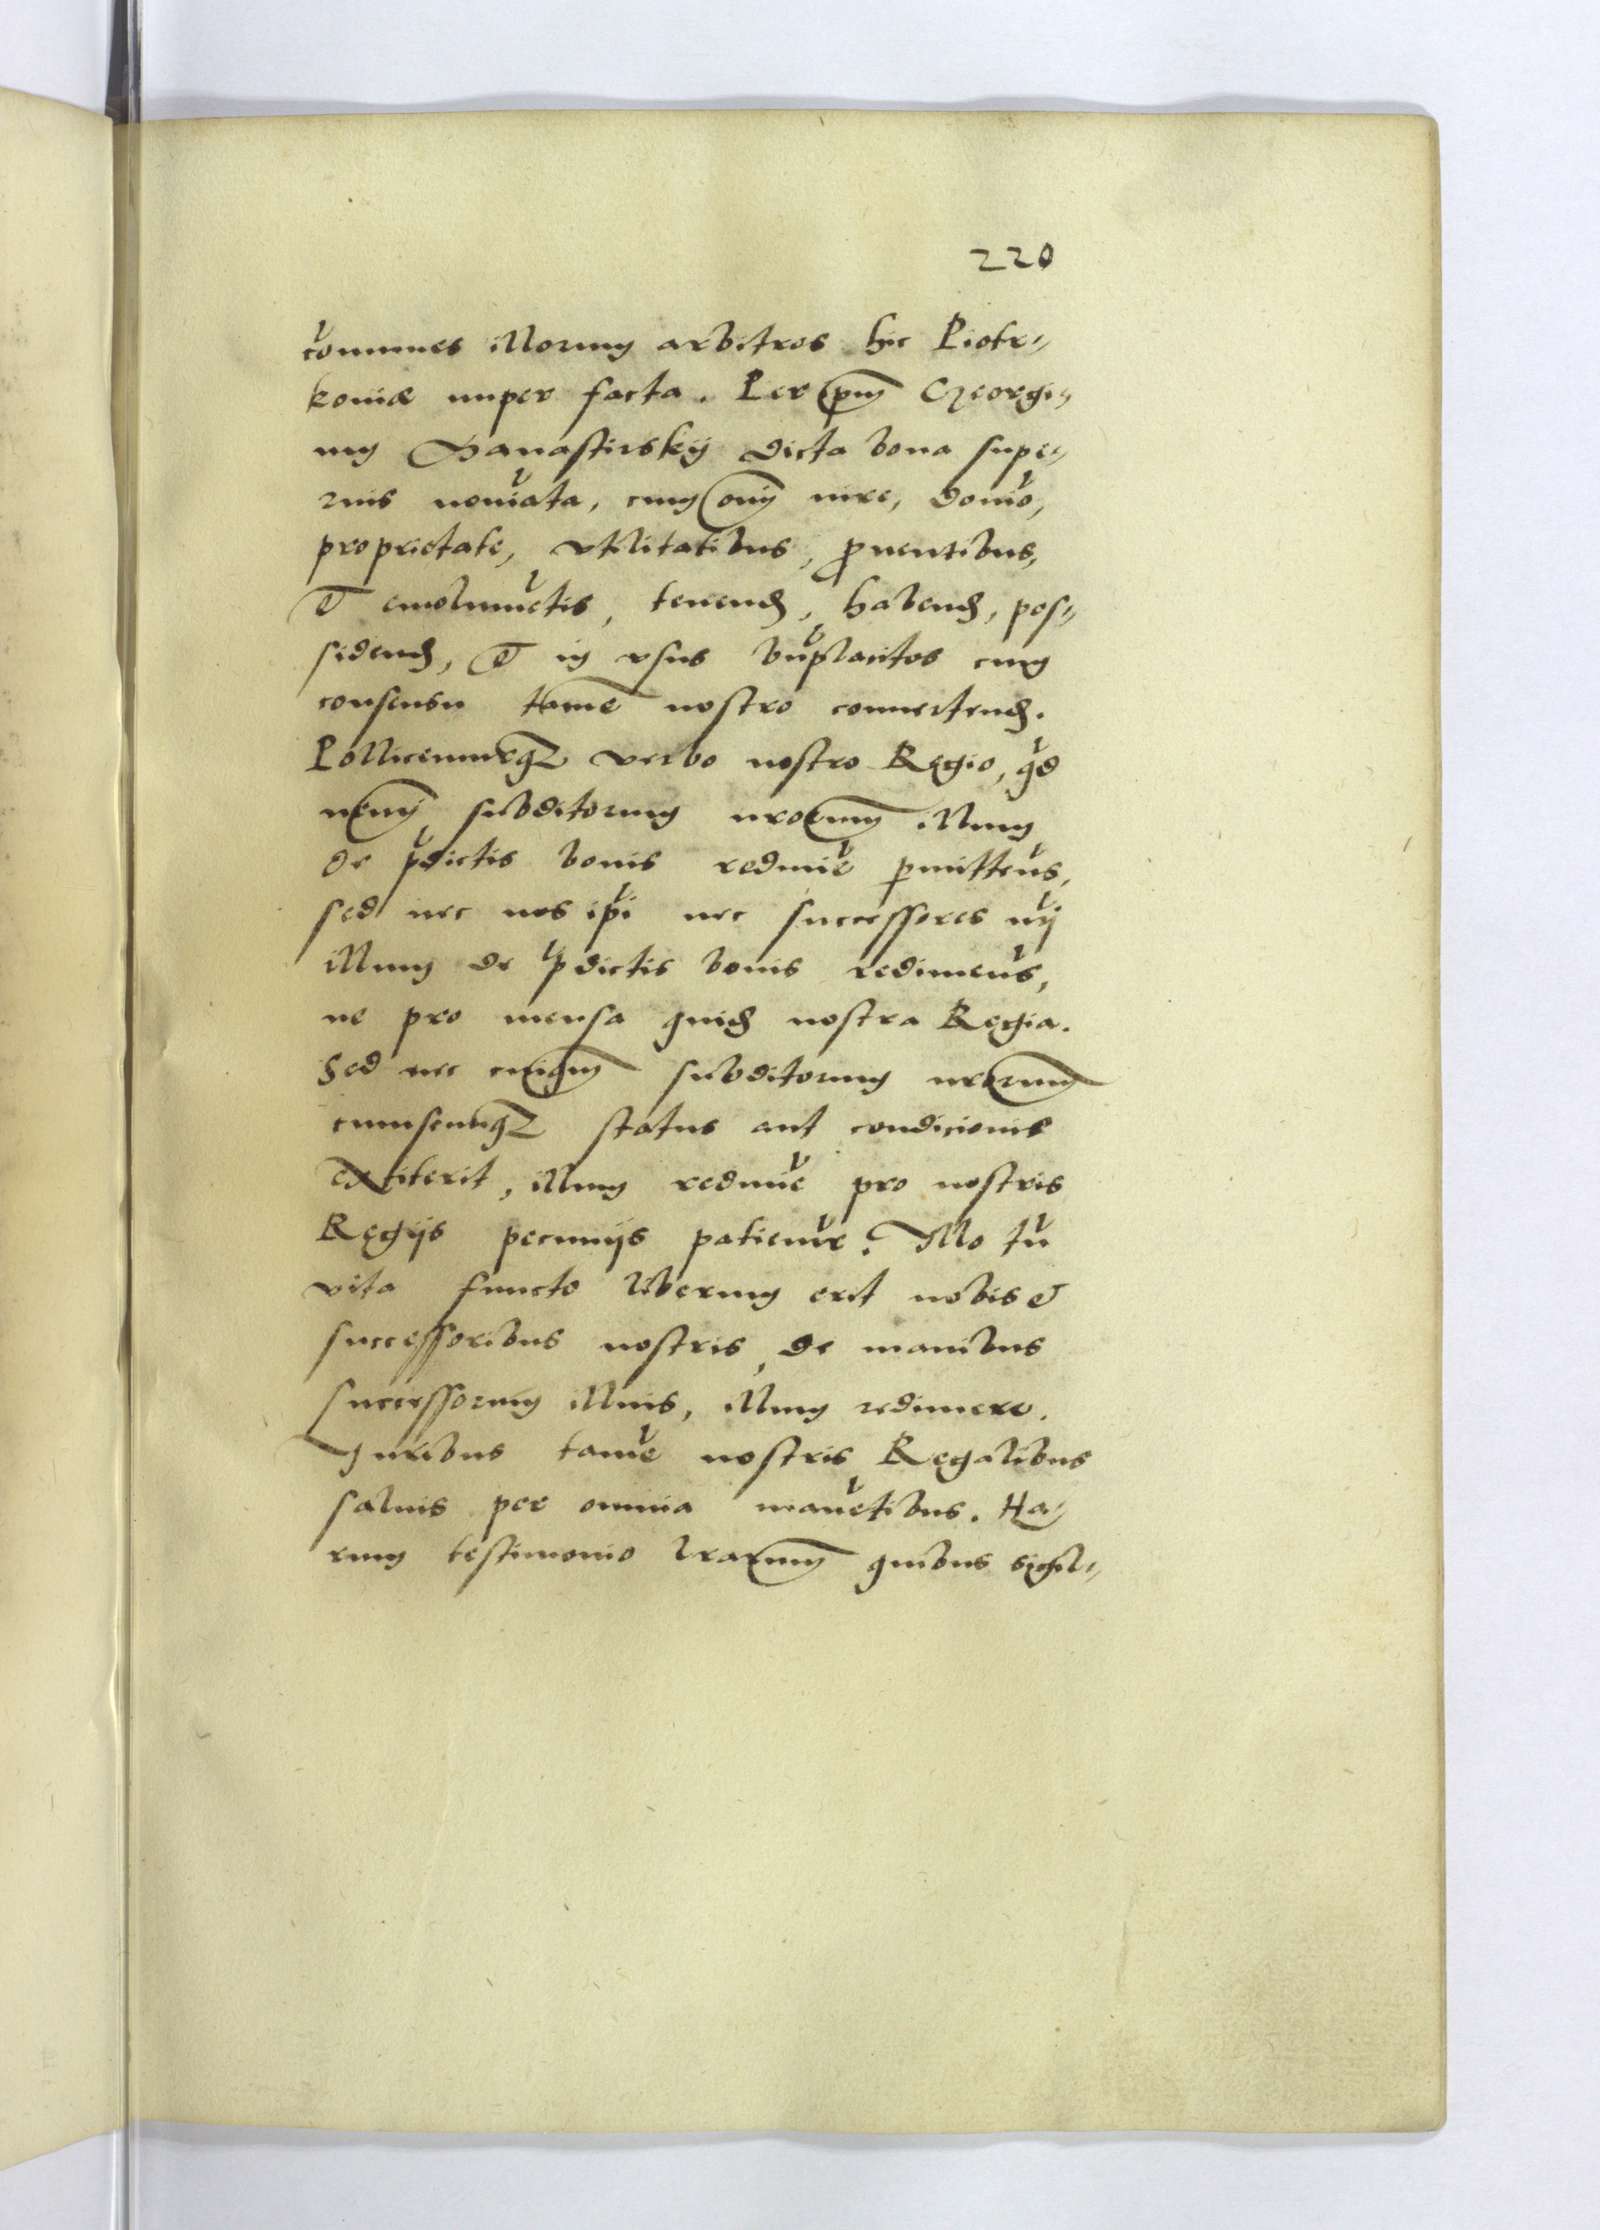 220
com̄unes illorum arbitros hic Piotr„
koviæ nuper facta. Per ip̄m Georgi„
um dicta bona supe„
rius noīata, cum om̄i iure, domīo,
proprietate, vtilitatibus, ꝓuentibus,
et emolumētis, tenend̄, habend̄, pos„
sidend̄, et in vsus bn̄placitos cum
consensu tamē nostro conuertend̄.
Pollicemurqꝫ verbo nostro Regio, qd̄
nemī subditorum nr̄orum illum
de p̄dictis bonis redimē ꝑmittem̄s,
sed nec nos ip̄i nec successores nr̄i
illum de p̄dictis bonis redimem̄s,
ne pro mensa quid̄ nostra Regia.
Sed nec cuiq̄m subditorum nr̄orum
cuiuscunqꝫ status aut condicionis
extiterit, illum redimē pro nostris
Regijs pecunijs patiem̄r. Illo tn̄
vita functo liberum erit nobis et
successoribus nostris, de manibus
successorum illius, illum redimere.
Iuribus tamē nostris Regalibus
saluis per omnia manētibus. Ha„
rum testimonio lr̄arum quibus sigil„